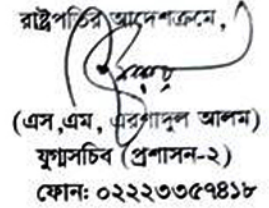 রাষ্ট্রপতির আদেশক্রমে,
(এস,এম, এরশাদুল আলম)
যুগ্মসচিব (প্রশাসন-২)
ফোন: ০২২২৩৩৫৭৪১৮